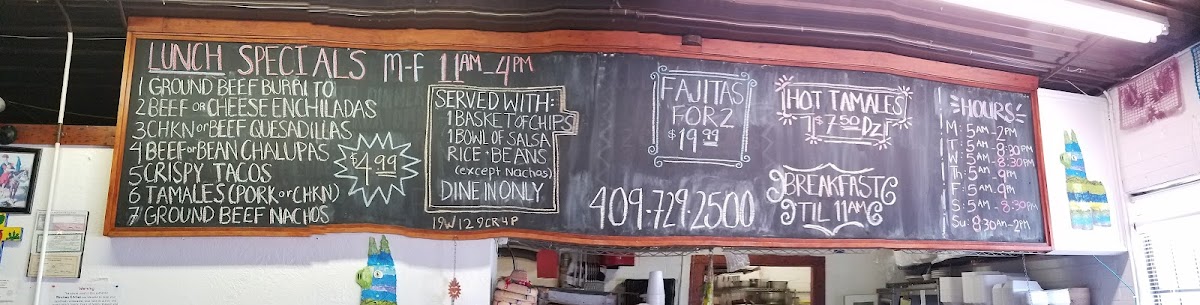 LUNCH SPECIALS M-F 11AM-4PM
1 GROUND BEEF BURRITO
2 BEEF or CHEESE ENCHILADAS
3 CHKN or BEEF QUESADILLAS
4 BEEF or BEAN CHALUPAS
5 CRISPY TACOS
6 TAMALES (PORK or CHKN)
7 GROUND BEEF NACHOS
$4.99
SERVED WITH:
1 BASKET OF CHIPS
1 BOWL OF SALSA
RICE + BEANS
(except NACHOS)
DINE IN ONLY
FAJITAS
FOR 2
$19.99
409.729.2500
HOT TAMALES
$7.50 DZ
BREAKFAST
TIL 11AM
HOURS
M: 5AM-2PM
T: 5AM-8:30PM
W: 5AM-8:30PM
Th: 5AM-9PM
F: 5AM-9PM
S: 5AM-8:30PM
Su: 8:30AM-2PM